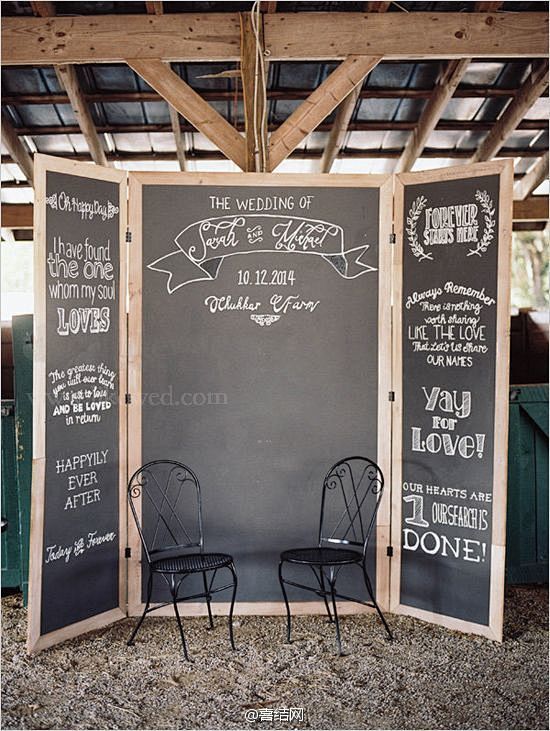 Oh Happy Day
I have found
the one
whom my soul
LOVES
The greatest thing
you will ever learn
is just to love
AND BE LOVED
in return
HAPPILY
EVER
AFTER
Today & Forever
THE WEDDING OF
Sarah AND Michael
10.12.2014
Chukkar Farm
FOREVER
STARTS HERE
Always Remember
There is nothing
worth sharing
LIKE THE LOVE
That Let's Us Share
OUR NAMES
YAY
FOR
LOVE!
OUR HEARTS ARE
1 OUR SEARCH IS
DONE!
@喜结网